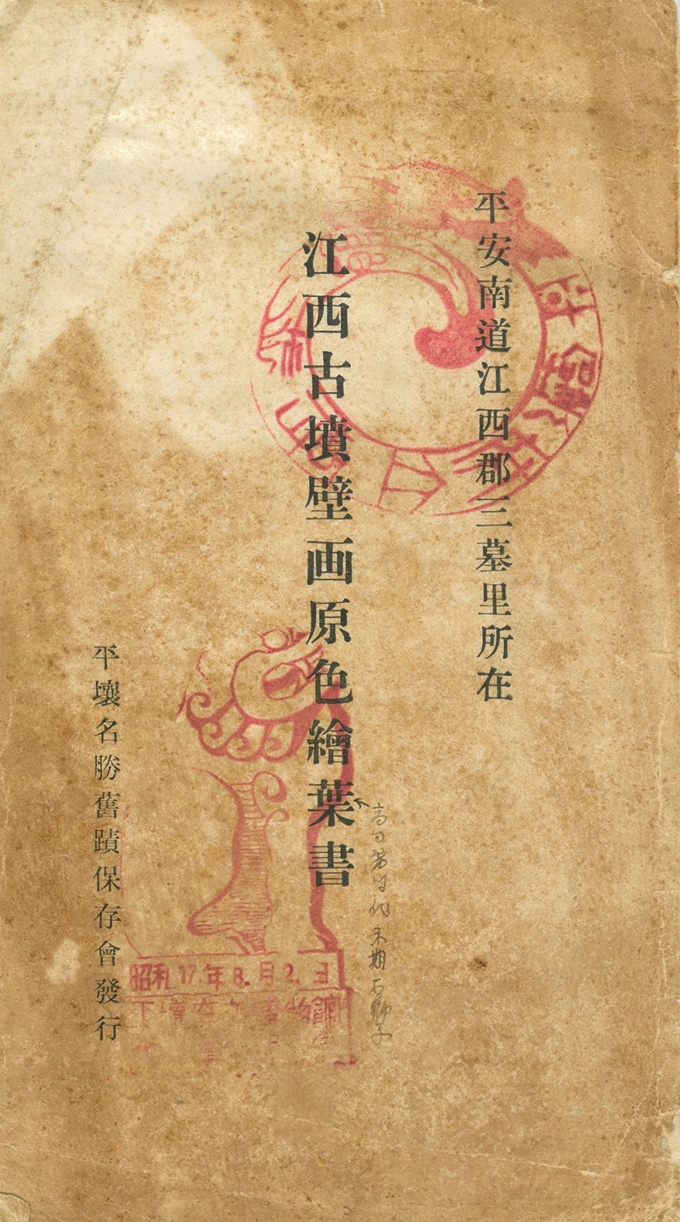 平安南道江西郡三墓里所在
江西古墳壁画原色繪葉書
高句麗時代末期石獅子
平壤名勝舊蹟保存會發行
昭和17.年8.月2.日